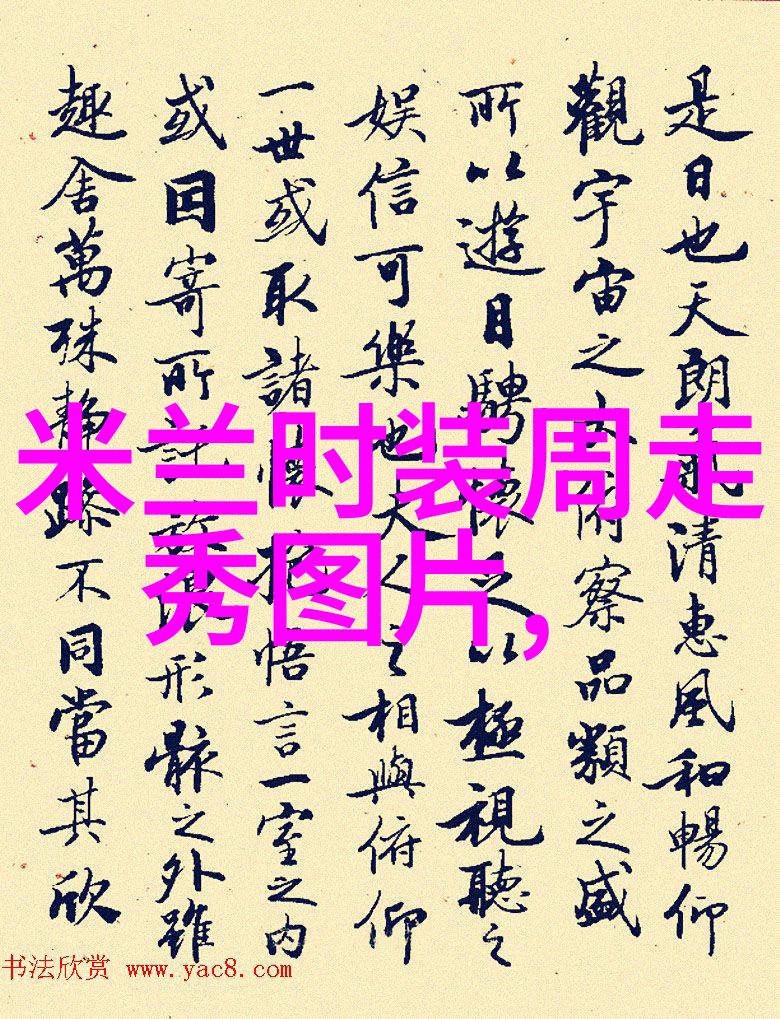 是日也天朗氣清惠風和暢仰
觀宇宙之大俯察品類之盛
所以遊目騁懷足以極視聽之
娱信可樂也夫人之相與俯仰
一世或取諸懷抱悟言一室之内
或因寄所託放浪形骸之外雖
趣舍萬殊静躁不同當其欣
米兰时装周走
秀图片,
书法欣赏 www.yac8.com